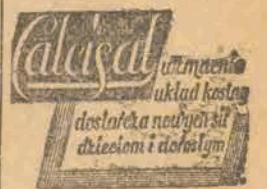 Calcisat
wzmacnia
układ kostny
dostarcza nowych sił
dzieciom i dorosłym